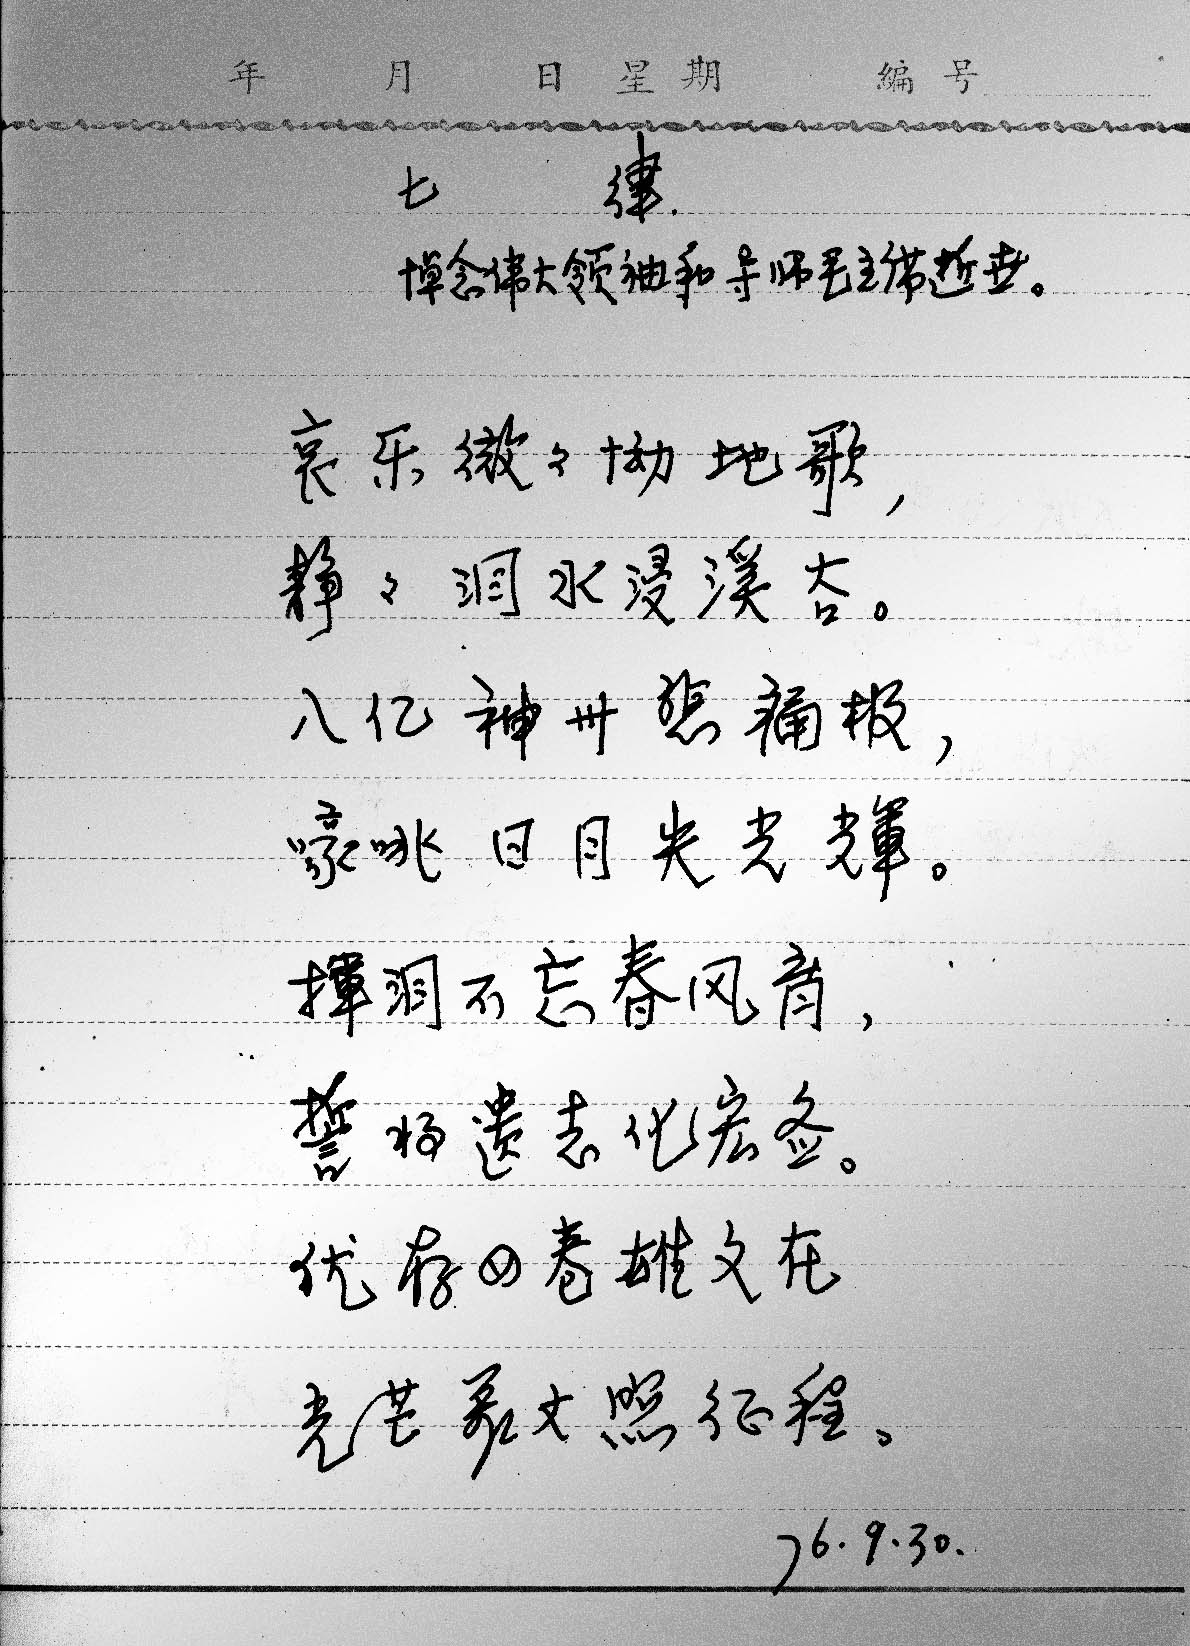 年 月 日 星期 编号
七 律.
悼念伟大领袖和导师毛主席逝世。
哀乐微々恸地歌,
静々泪水浸溪谷。
八亿神州悲痛极,
嚎咷日月失光輝。
揮泪不忘春风育,
誓将遗志化宏
优存四卷雄文在
光芒万丈照征程。
76.9.30.